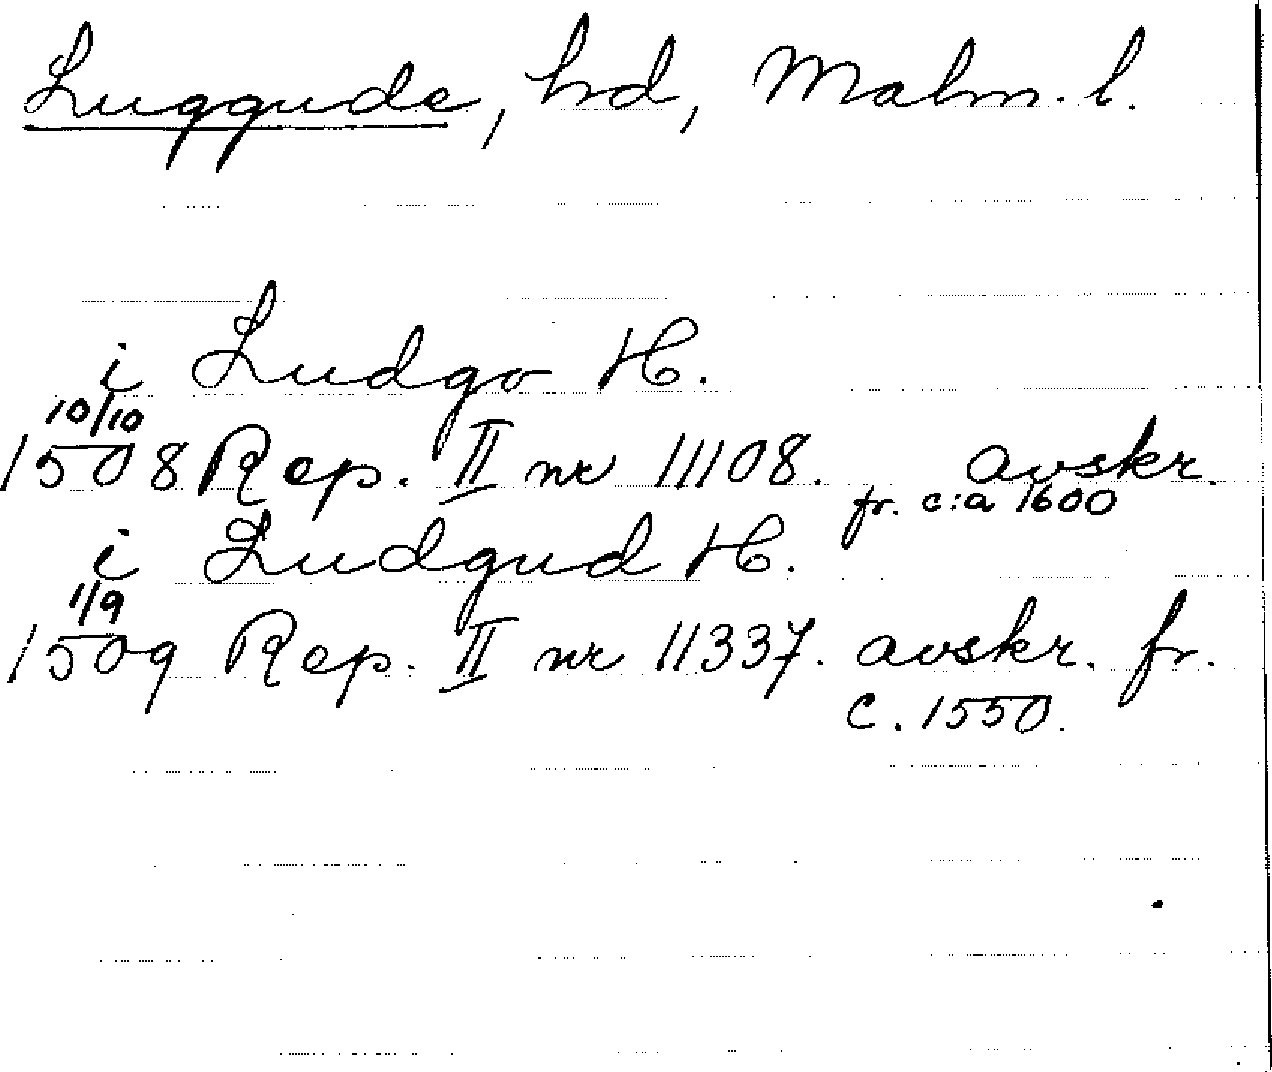 Luggude, hd, Malm. l.
i Ludgo H.
10/10
1508 Rep. II nr 11108. avskr.
fr. c:a 1600
i Ludgud H.
1/9
1509 Rep. II nr 11337. avskr. fr.
c. 1550.